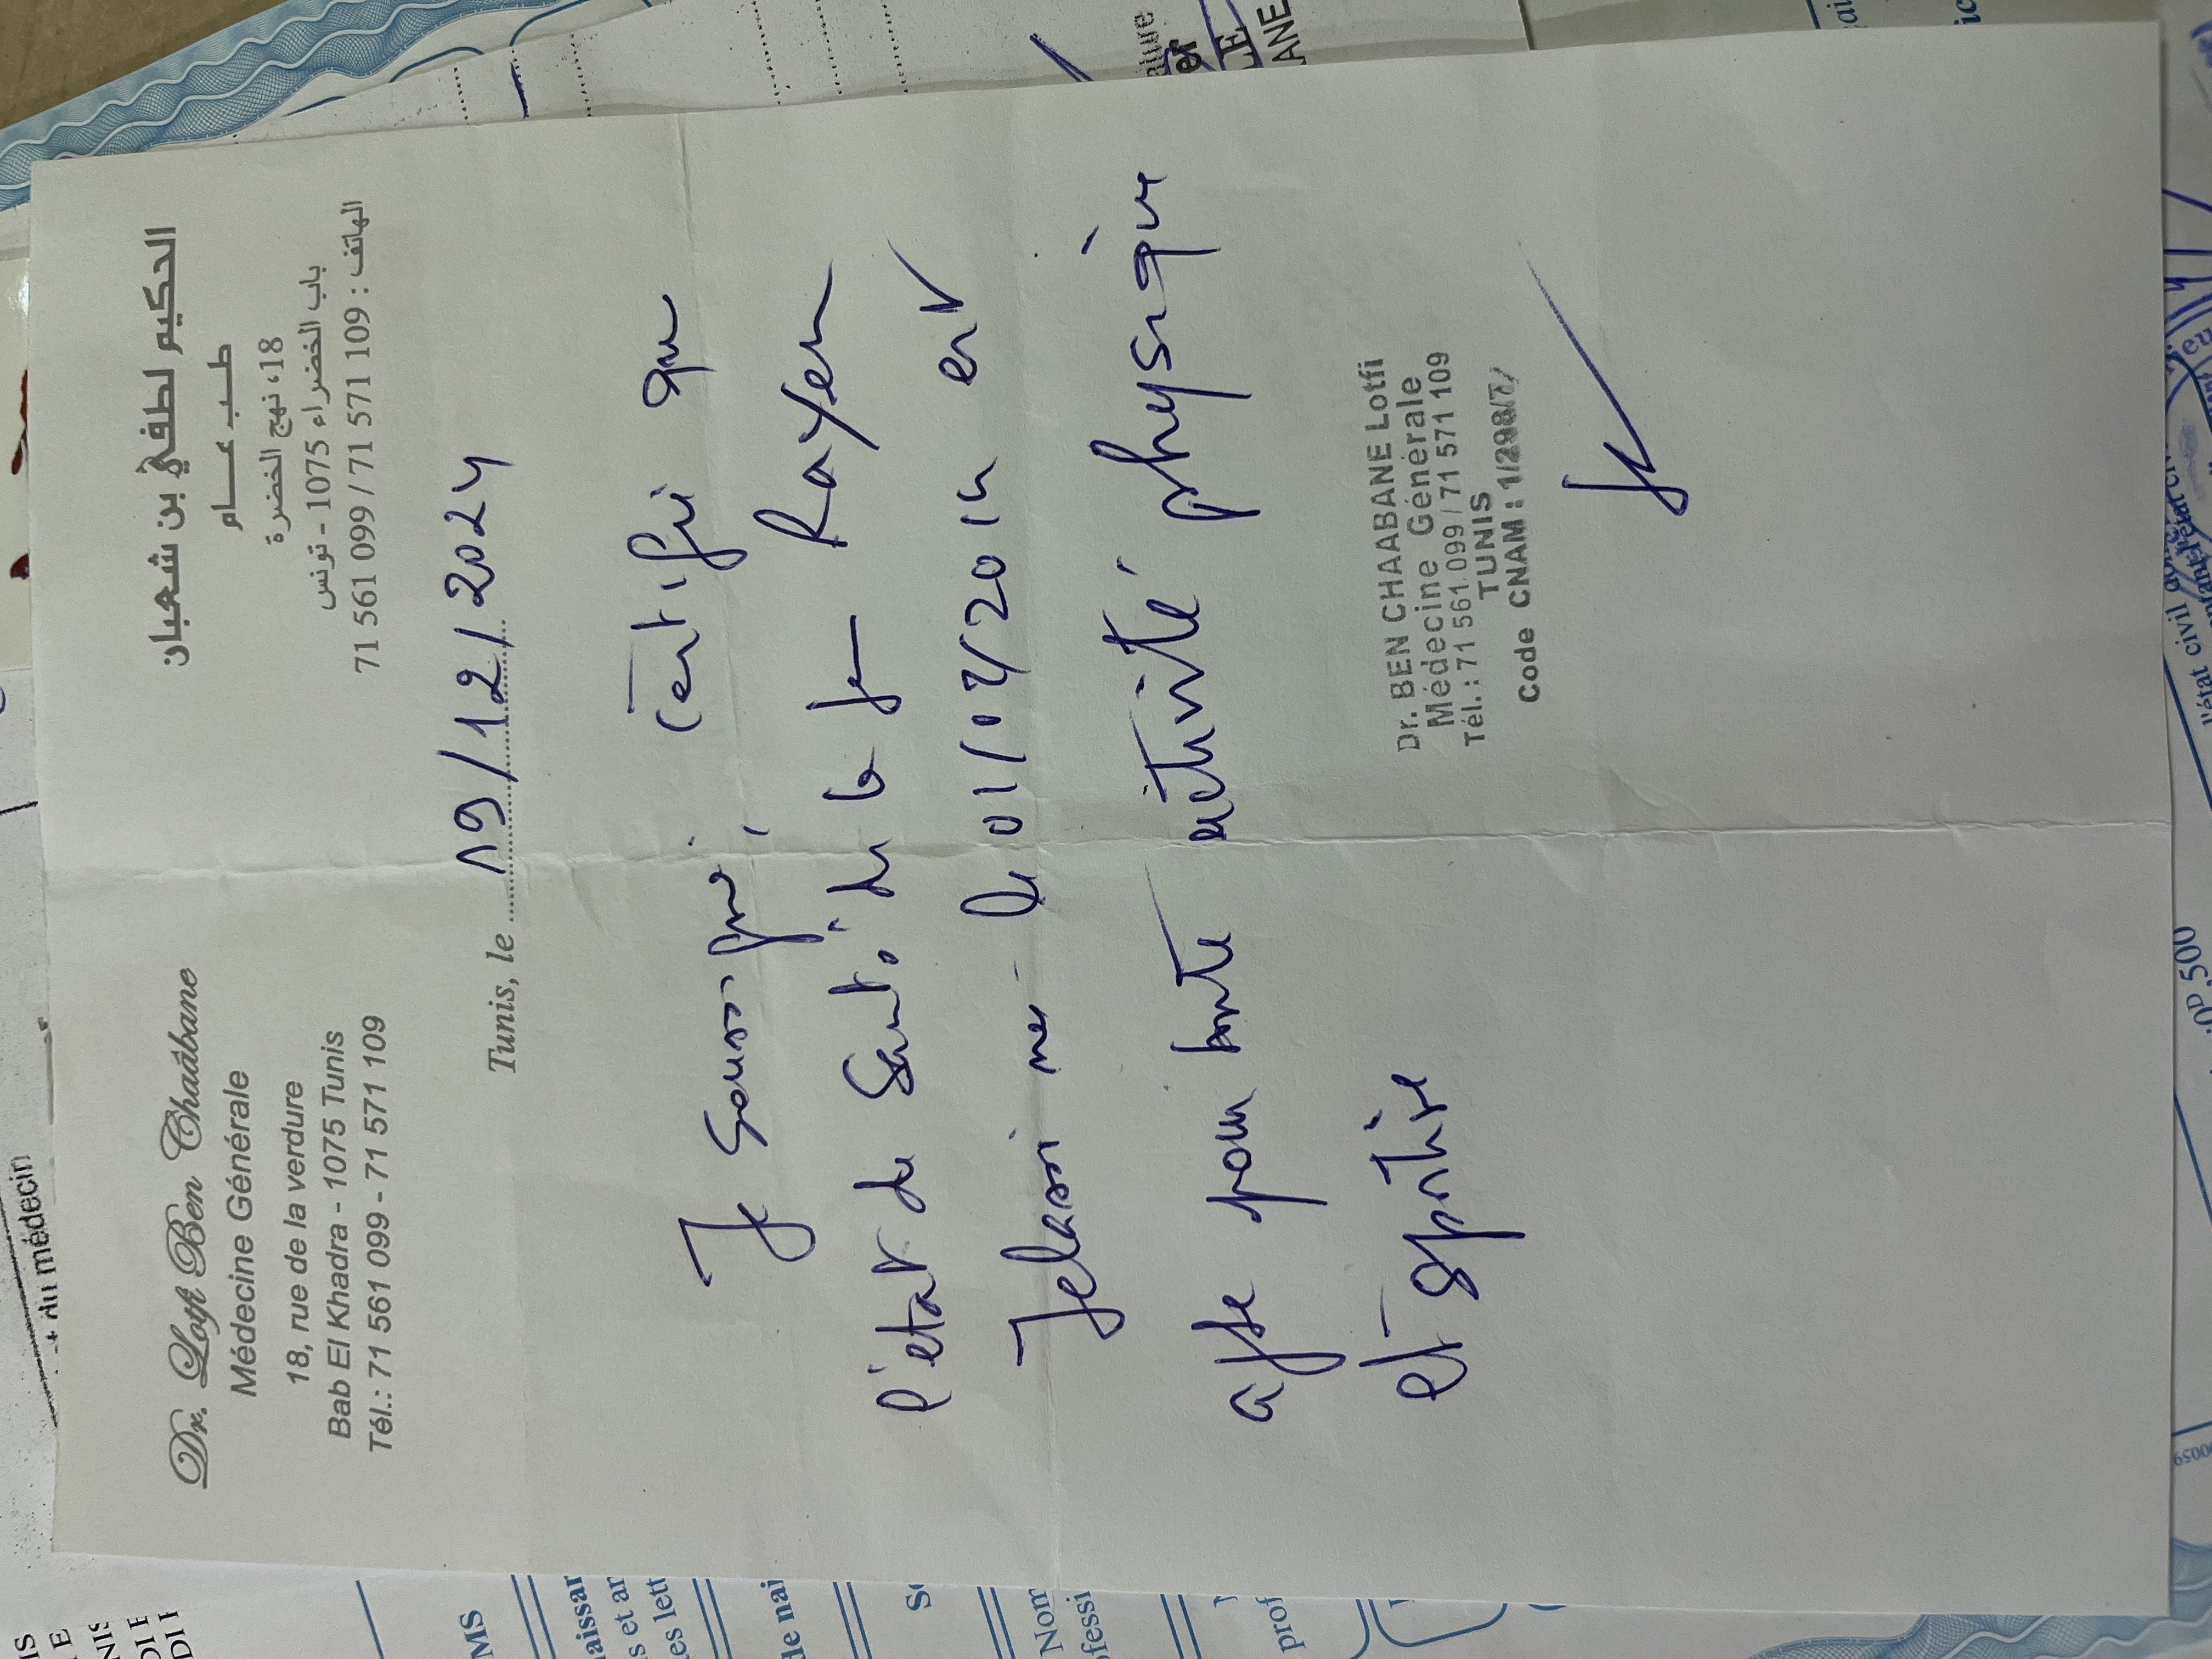 Dr. Lotfi Ben Chaâbane
Médecine Générale
18, rue de la verdure
Bab El Khadra - 1075 Tunis
Tél.: 71 561 099 - 71 571 109
الحكيم لطفي بن شعبان
طب عام
18، نهج الخضرة
باب الخضراء 1075 - تونس
الهاتف : 109 571 71 / 099 561 71
Tunis, le 19/12/2024
Je soussigné certifie que
l'état de santé de la Rayen
Jelassi né le
apte pour toute activité physique
et sportive
Dr. BEN CHAABANE Lotfi
Médecine Générale
Tél.: 71 561 099 / 71 571 109
TUNIS
Code CNAM :
Au médecin
MS
de nai
Nom
prof
l'état civil
500